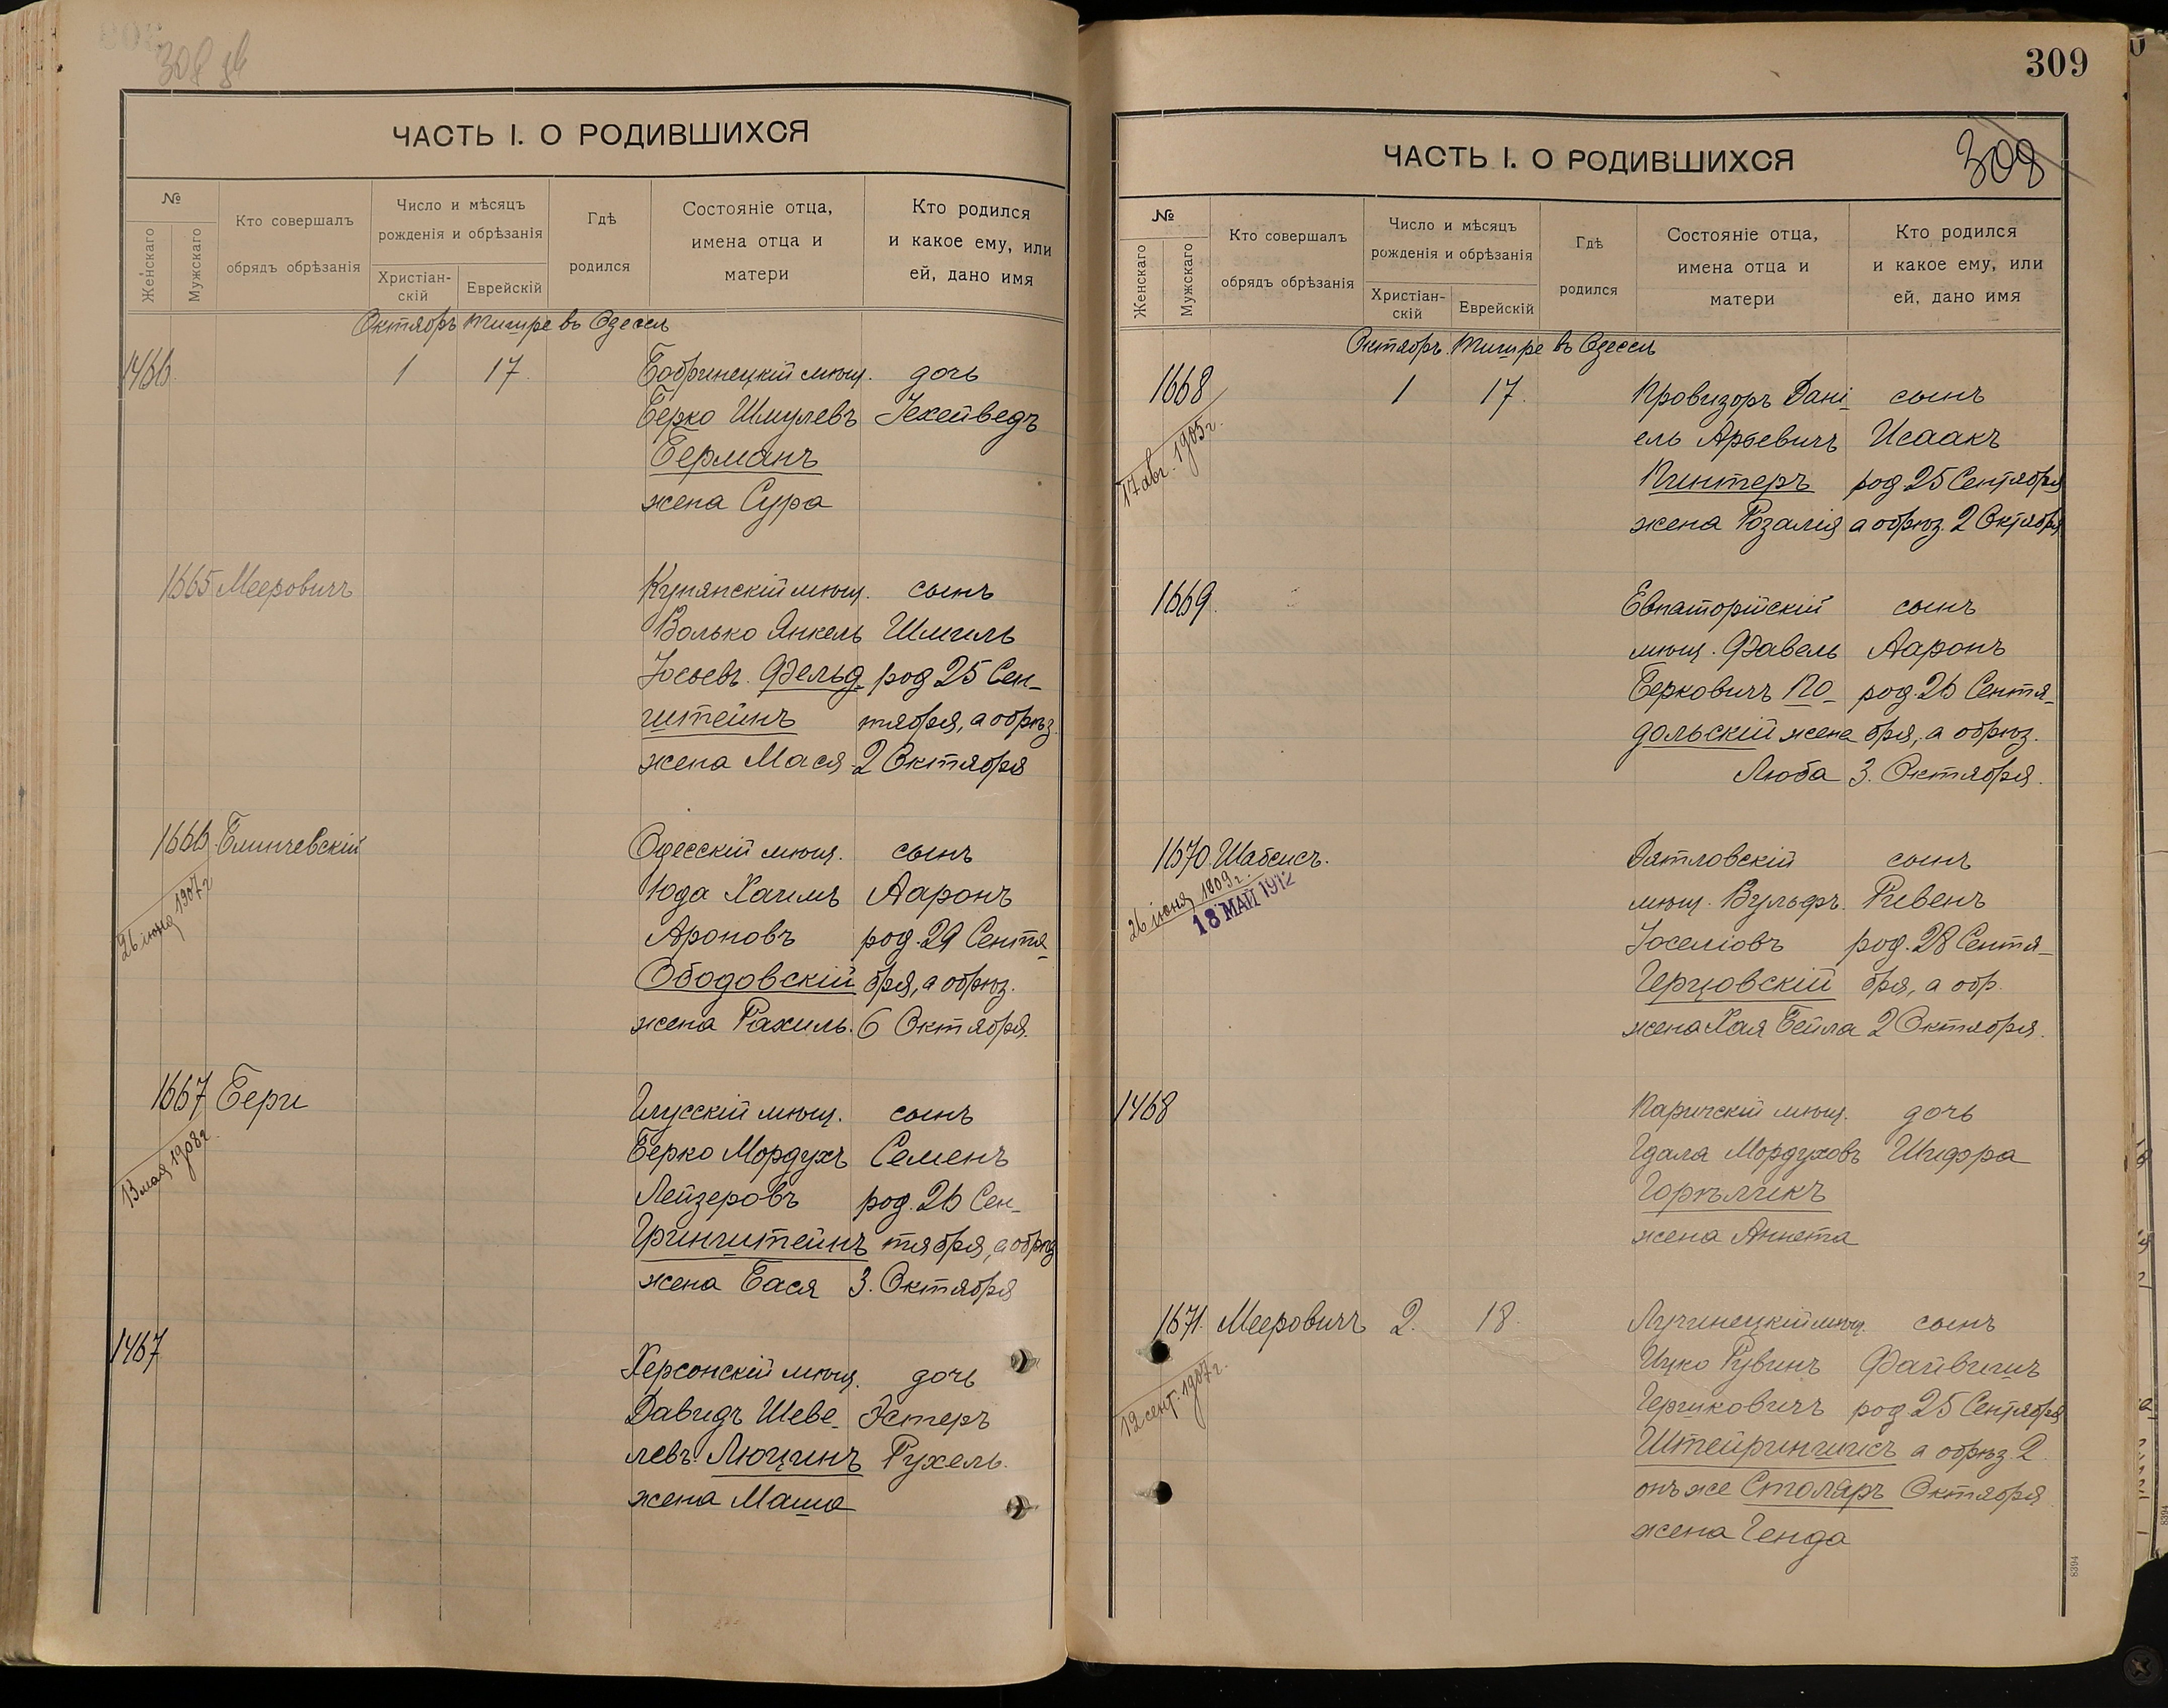 ЧАСТЬ I. О РОДИВШИХСЯ
№
Женскаго
Мужскаго
Кто совершалъ
обрядъ обрѣзанія
Число и мѣсяцъ
рожденія и обрѣзанія
Христіан-
скій
Еврейскій
Гдѣ
родился
Состояніе отца,
имена отца и
матери
Кто родился
и какое ему, или
ей, дано имя
Октябрь Тишре въ Одессѣ
1466 1 17. Бобринецкій мѣщ. дочь
Берко Шмулевъ Іехейведъ
Берманъ
жена Сура
1665 Мееровичъ Купянскій мѣщ. сынъ
Волько Янкель Шмиль
Іосьевъ Фельд род 25 Сен-
штейнъ тября, а обрѣз.
жена Мася 2 Октября
1666 Одесскій мѣщ. сынъ
26 іюня 1907 г
Юда Хаимъ Ааронъ
Ароновъ род. 29 Сентя-
Ободовскій бря, а обрѣз.
жена Рахиль. 6 Октября.
1667 Бери Глусскій мѣщ. сынъ
13 мая 1908 г.
Берко Мордухъ Семенъ
Лейзеровъ род. 26 Сен-
Гринштейнъ тября, а обрѣз
жена Бася 3. Октября
1467 Херсонскій мѣщ. дочь
Давидъ Шеве- Эстеръ
левъ Люцинъ Рухель.
жена Маша
309
308
ЧАСТЬ I. О РОДИВШИХСЯ
№
Женскаго
Мужскаго
Кто совершалъ
обрядъ обрѣзанія
Число и мѣсяцъ
рожденія и обрѣзанія
Христіан-
скій
Еврейскій
Гдѣ
родился
Состояніе отца,
имена отца и
матери
Кто родился
и какое ему, или
ей, дано имя
Октябрь Тишре въ Одессѣ
1668 1 17. Провизоръ Дані- сынъ
17 авг. 1905 г.
ель Арьевичъ Исаакъ
Пинтеръ род 25 Сентября
жена Розалія а обрѣз. 2 Октября
1669. Евпаторійскій сынъ
мѣщ. Фавель Ааронъ
Берковичъ По- род. 26 Сентя-
дольскій жена бря, а обрѣз.
Люба 3. Октября.
1670. Шабсисъ. Дятловскій сынъ
26 іюня 1909 г.
18 МАЙ 1912
мѣщ. Вульфъ. Ривенъ
Іоселіовъ род. 28 Сентя-
Герцовскій бря, а обр.
жена Хая Бейла 2 Октября.
1468 Паричскій мѣщ. дочь
Гдаля Мордуховъ Шифра
Горѣликъ
жена Аннета
1671. Мееровичъ 2. 18. Лучинецкій мѣщ. сынъ
12 сент. 1907 г.
Ицко Рувинъ Файвишъ
Гершковичъ род 25 Сентября
Штейриншисъ а обрѣз. 2
онъ же Столяръ Октября
жена Генда
8394